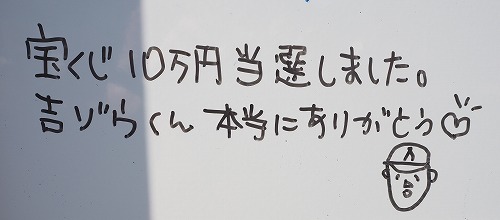 宝くじ10万円当選しました。
吉ゾウくん 本当にありがとう♡